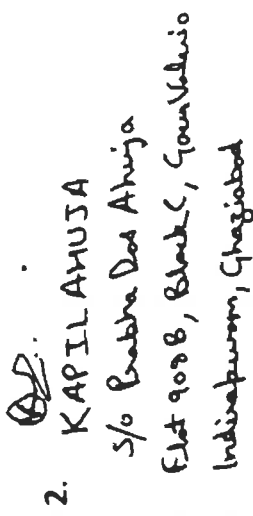 2.
KAPIL AHUJA
S/o Prabha Das Ahuja
Flat 908 B, Block C, Gaur Valerio
Indirapuram, Ghaziabad